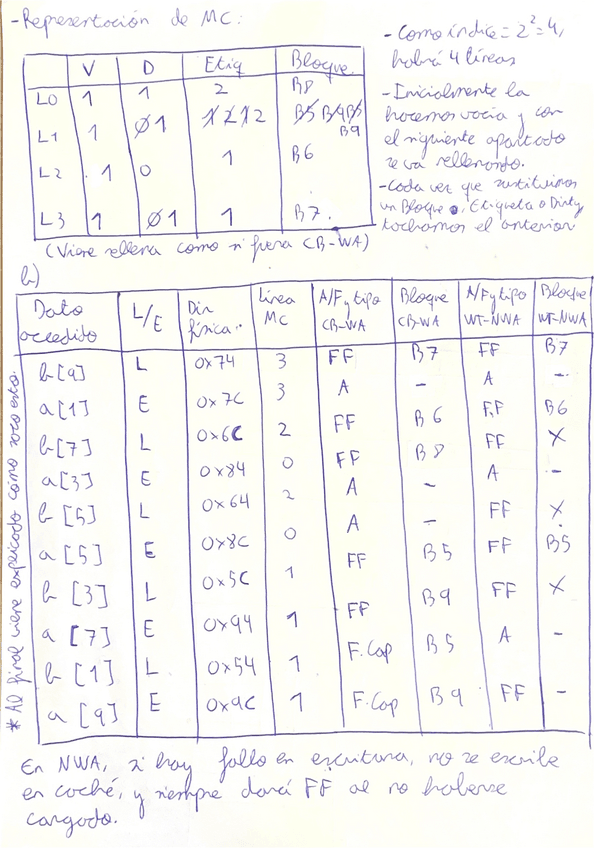 - Representación de MC:
V D Etiq Bloque
L0 1 1 2 B8
L1 1 0 1 1 2 1 2 B5 B9 B5 B9
L2 1 0 1 B6
L3 1 0 1 1 B7
(Viene rellena como si fuera CB-WA)
- Como índice = 2² = 4,
habrá 4 líneas
- Inicialmente la
hacemos vacía y con
el siguiente apartado
se va rellenando.
- Cada vez que sustituimos
un Bloque, Etiqueta o Dirty
tachamos el anterior
b)
Dato accedido L/E Dir física Línea MC A/F y tipo CB-WA Bloque CB-WA A/F y tipo WT-NWA Bloque WT-NWA
b[9] L 0x74 3 FF B7 FF B7
a[1] E 0x7C 3 A - A -
b[7] L 0x6C 2 FF B6 FF B6
a[3] E 0x84 0 FF B8 FF X
b[5] L 0x64 2 A - A -
a[5] E 0x8C 0 A - FF X
b[3] L 0x5C 1 FF B5 FF B5
a[7] E 0x94 1 FF B9 FF X
b[1] L 0x54 1 F.Cap B5 A -
a[9] E 0x9C 1 F.Cap B9 FF -
* Al final viene explicado cómo saco esto.
En NWA, si hay fallo en escritura, no se escribe
en caché, y siempre dará FF al no haberse
cargado.